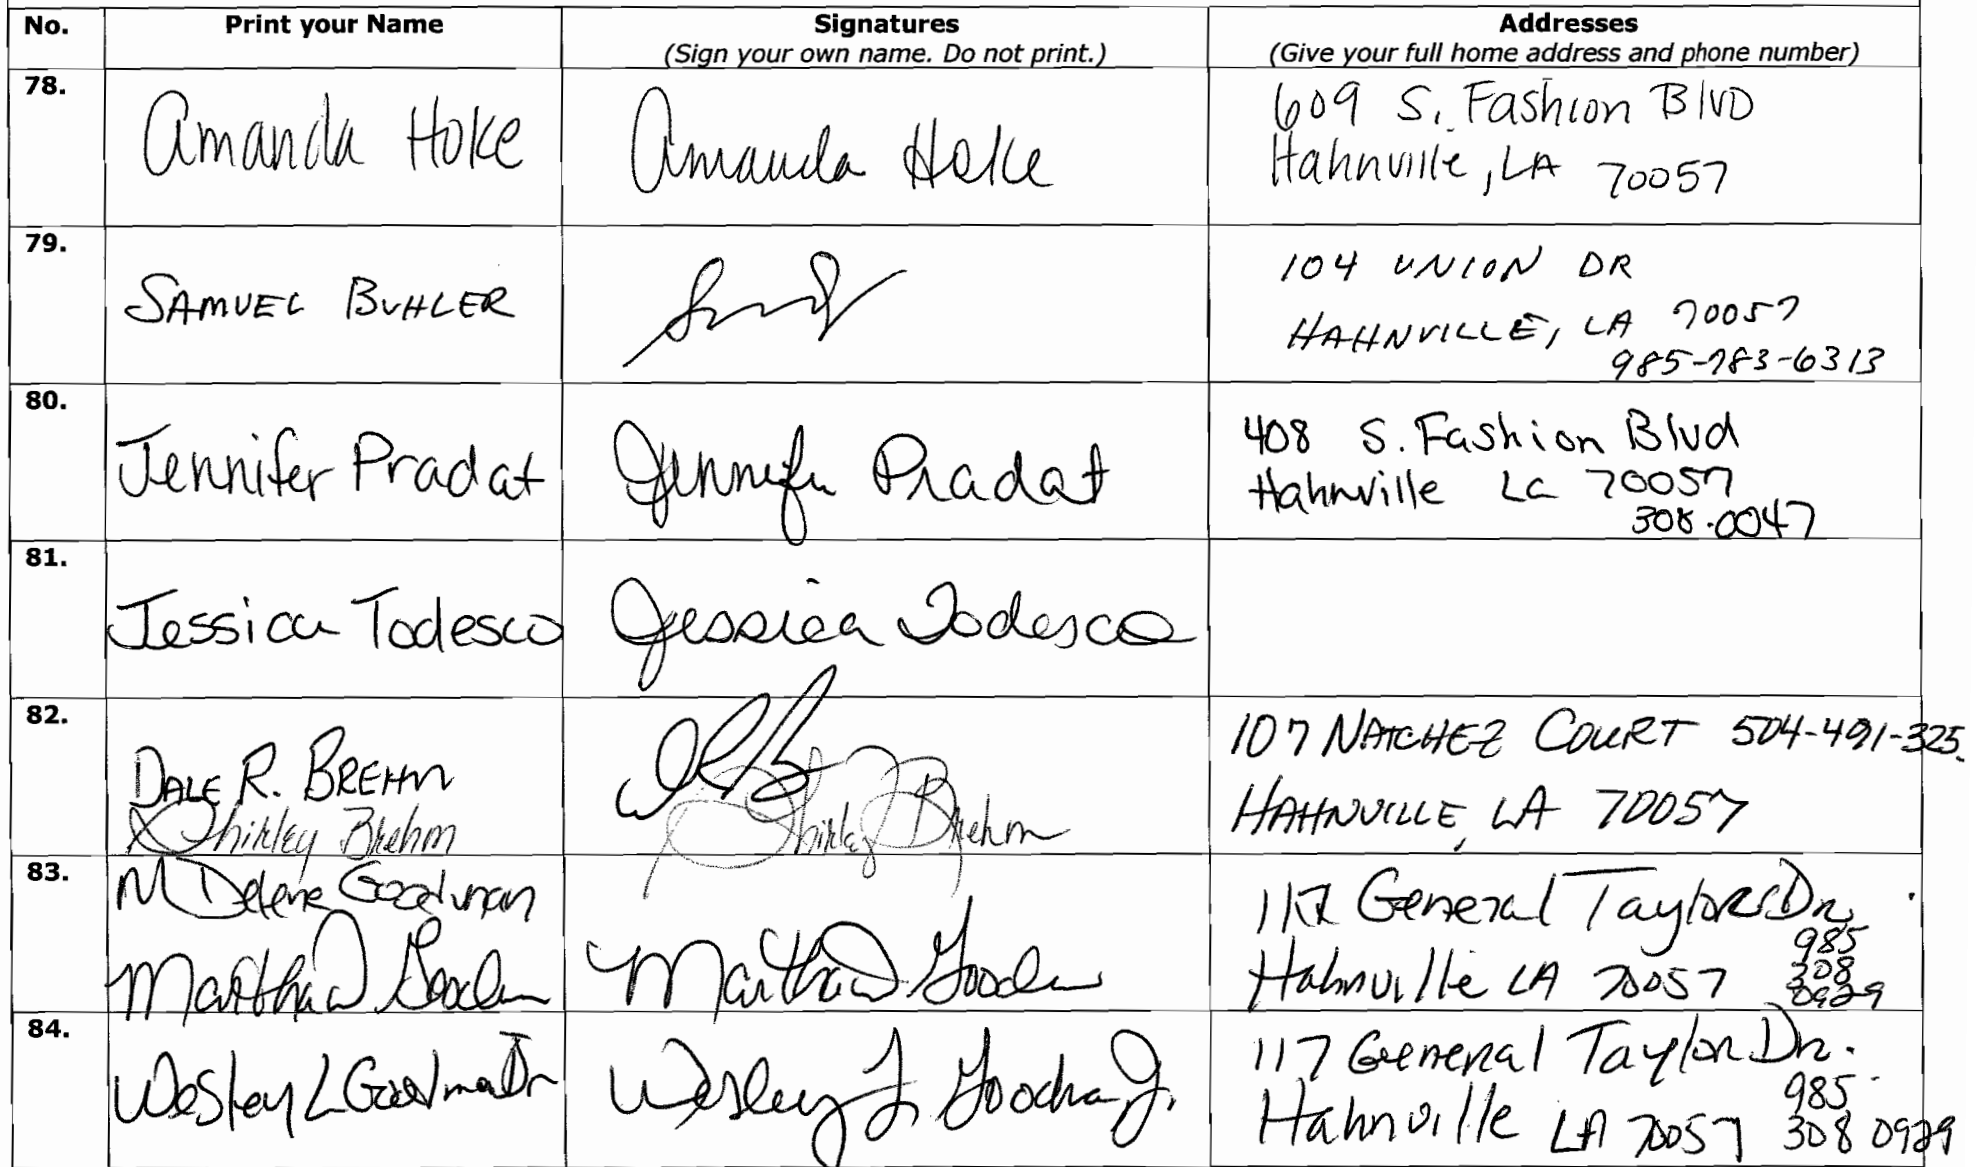 No. Print your Name Signatures Addresses
(Sign your own name. Do not print.) (Give your full home address and phone number)
78.
Amanda Hoke Amanda Hoke
609 S. Fashion Blvd
Hahnville, LA 70057
79.
SAMUEL BUHLER
104 UNION DR
HAHNVILLE, LA 70057
985-783-6313
80.
Jennifer Pradat Jennifer Pradat
408 S. Fashion Blvd
Hahnville La 70057
308.0047
81.
Jessica Todesco Jessica Todesco
82.
DALE R. BREHM
Shirley Brehm Shirley Brehm
107 NATCHEZ COURT 504-491-325
HAHNVILLE, LA 70057
83.
M Delene Goodman
Martha D. Goodman Martha D. Goodman
117 General Taylor Dr.
985
308
0929
Hahnville LA 70057
84.
Wesley L Goodman Jr Wesley L. Goodman Jr.
117 General Taylor Dr.
985
Hahnville LA 70057 308 0929